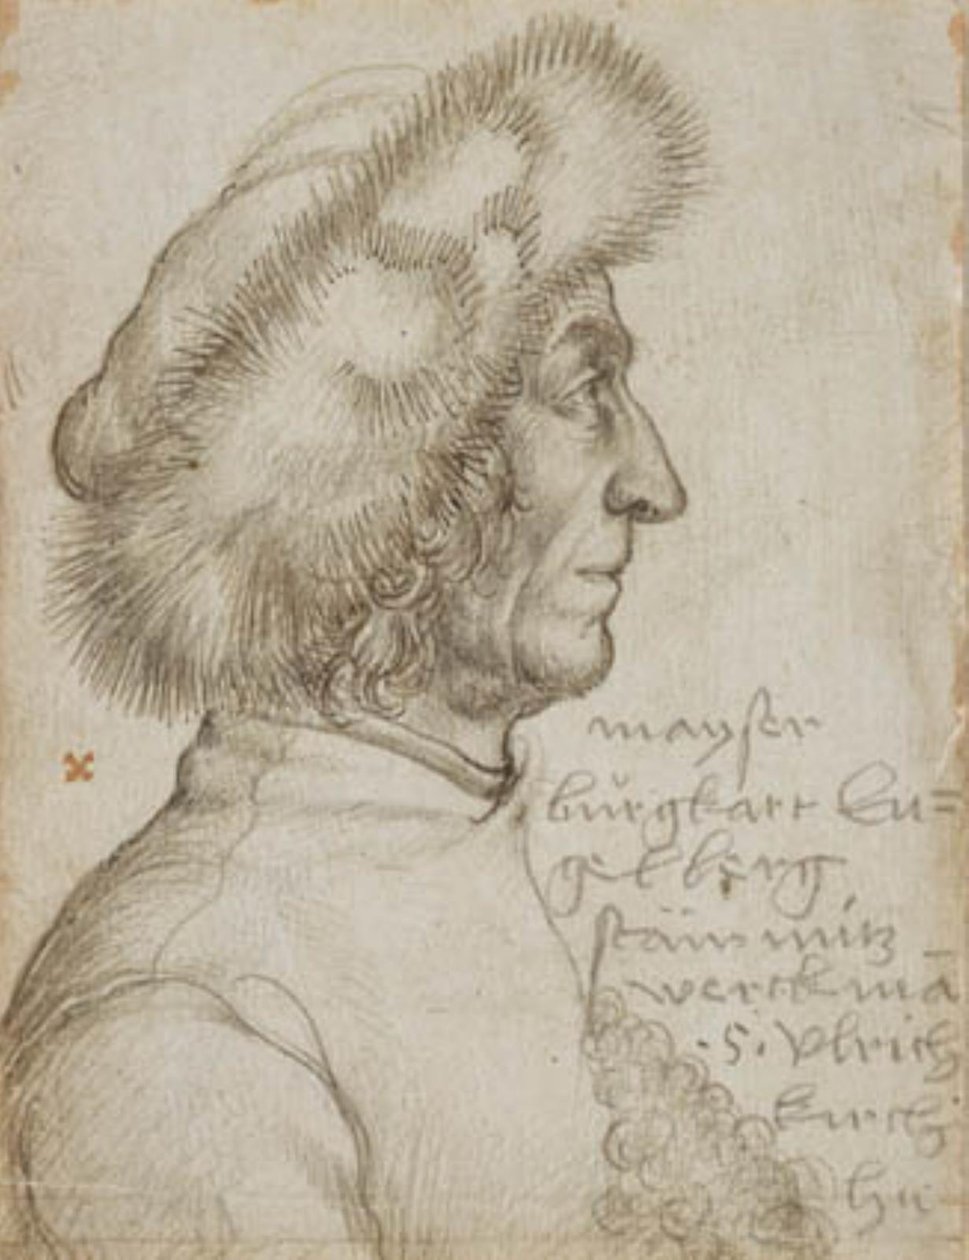 mayster
bůrgkart En=
gelberg
stäinmitz
werckmā
.S. Vlrich
kirch
hie